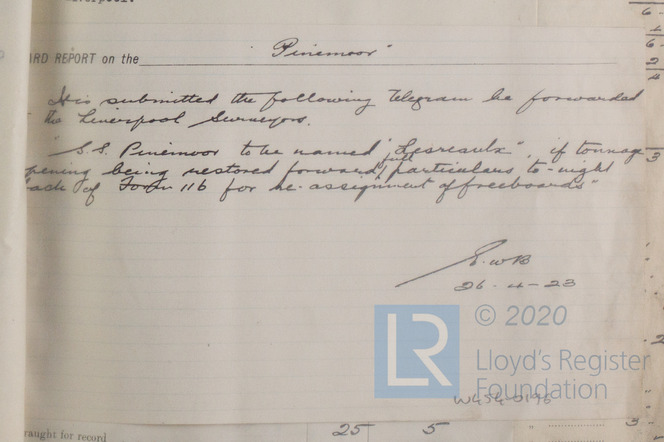 ARD REPORT on the "Pinemoor"
It is submitted the following telegram be forwarded
the Liverpool Surveyors.
"S.S. Pinemoor to be named "Lesreaulx", if tonnage
pening being restored forward full particulars to-night
back of Form 11b for re-assignment of freeboards"
E.W.B
26-4-23
LR © 2020
Lloyd's Register
Foundation
W454-0196
raught for record 25 5